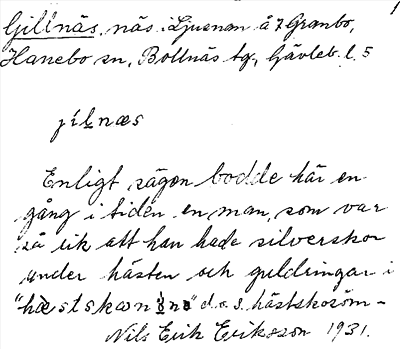 1
Gillnäs, näs i Ljusnan å 7 Granbo,
Hanebo sn, Bollnäs tg, Gävleb. l. 5
jilnæs
Enligt sägen bodde här en
gång i tiden en man, som var
så rik att han hade silverskor
under hästen och guldringar i
d.v.s. hästskosöm -
Nils Erik Eriksson 1931.